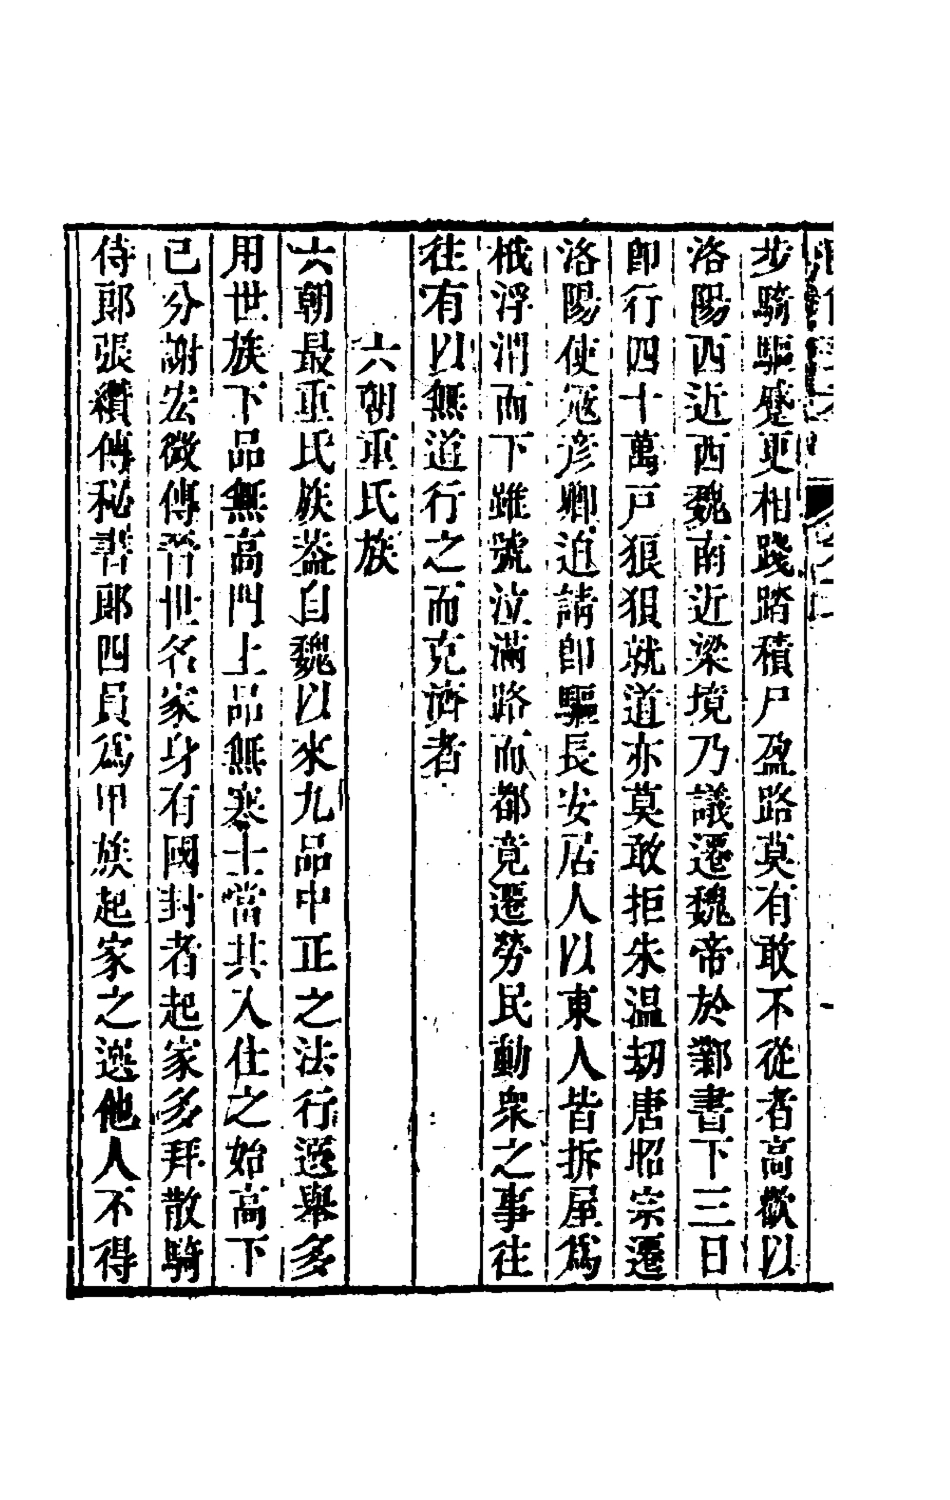 步騎驅蹙更相踐踏積尸盈路莫有敢不從者高歡以
洛陽西近西魏南近梁境乃議遷魏帝於鄴書下三日
卽行四十萬戸狼狽就道亦莫敢拒朱温刼唐昭宗遷
洛陽使冦彥卿迫請卽驅長安居人以東人皆拆屋爲
栰浮渭而下雖號泣滿路而都竟遷勞民動衆之事往
往有以無道行之而克濟者
六朝重氏族
六朝最重氏族葢自魏以來九品中正之法行選舉多
用世族下品無高門上品無寒士當其入仕之始高下
已分謝宏微傳晉世名家身有國封者起家多拜散騎
侍郎張纘傳秘書郎四員爲甲族起家之選他人不得